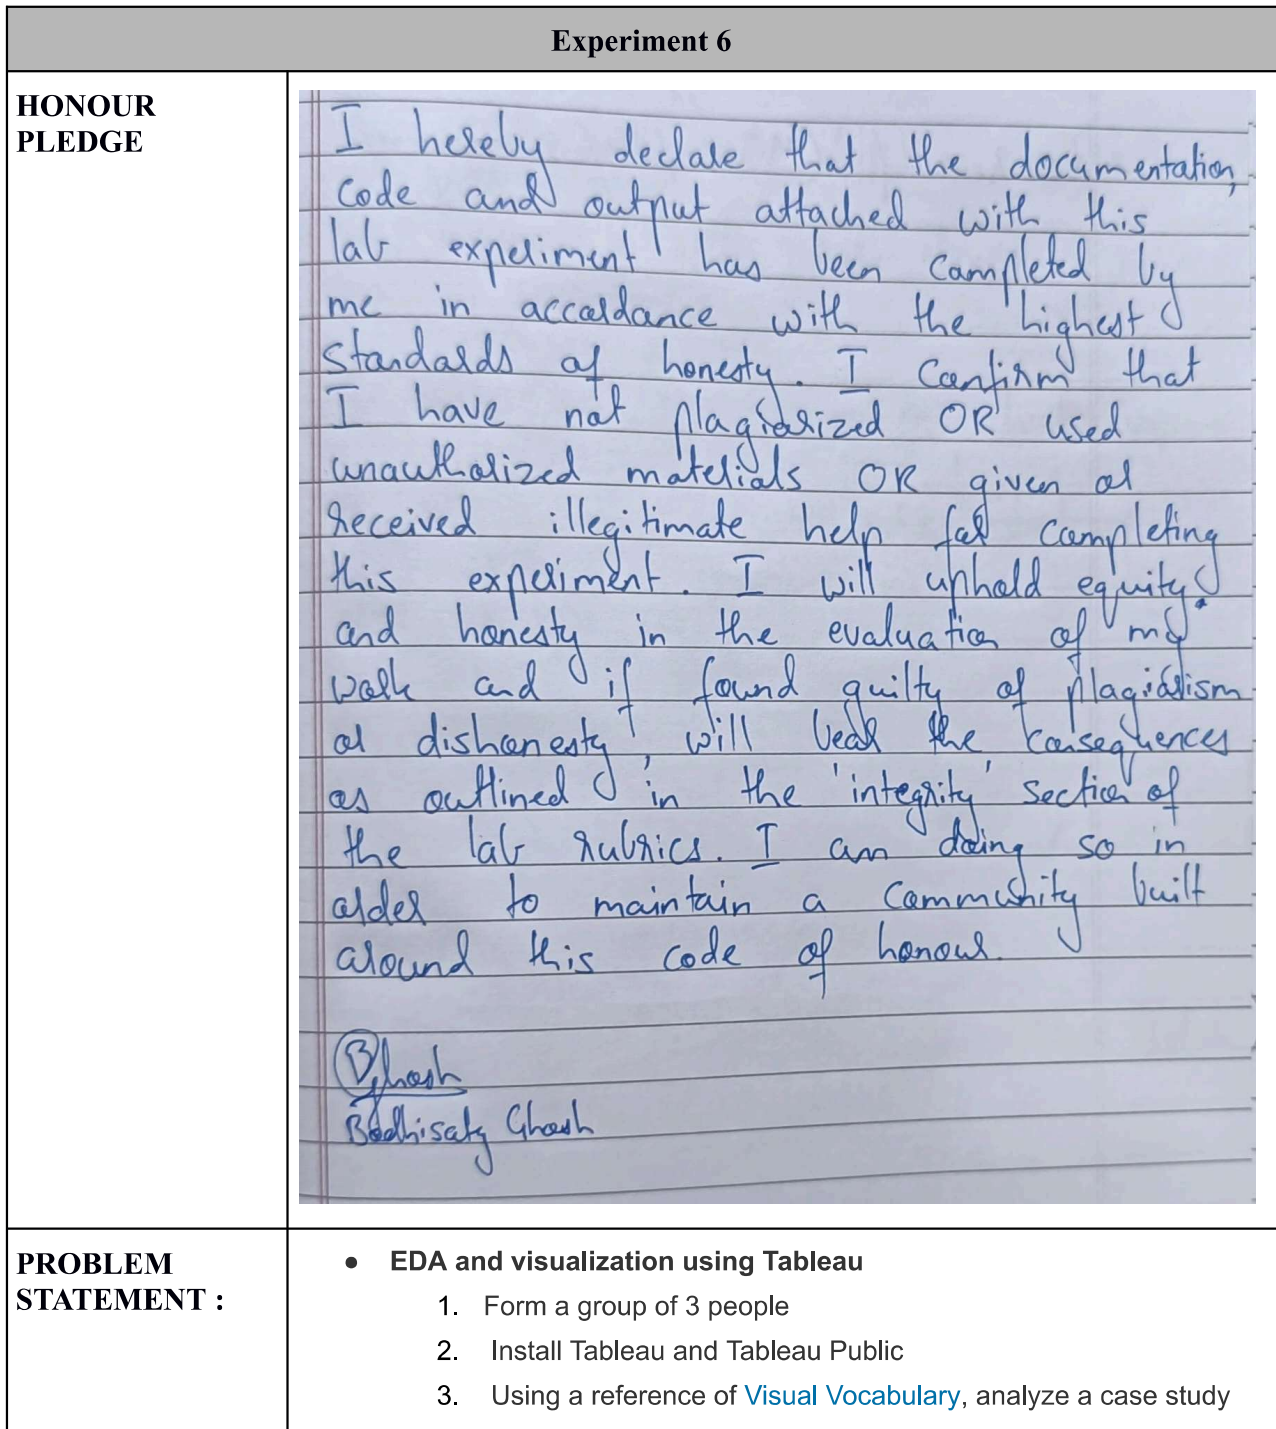 Experiment 6
HONOUR
PLEDGE
I hereby declare that the documentation,
code and output attached with this
lab experiment has been completed by
me in accordance with the highest
standards of honesty. I confirm that
I have not plagiarized OR used
unauthorized materials OR given or
received illegitimate help for completing
this experiment. I will uphold equity
and honesty in the evaluation of my
work and if found guilty of plagiarism
or dishonesty, will bear the consequences
as outlined in the 'integrity' section of
the lab rubrics. I am doing so in
order to maintain a community built
around this code of honour.
BGhosh
Bodhisatya Ghosh
PROBLEM
STATEMENT :
● EDA and visualization using Tableau
1. Form a group of 3 people
2. Install Tableau and Tableau Public
3. Using a reference of Visual Vocabulary, analyze a case study